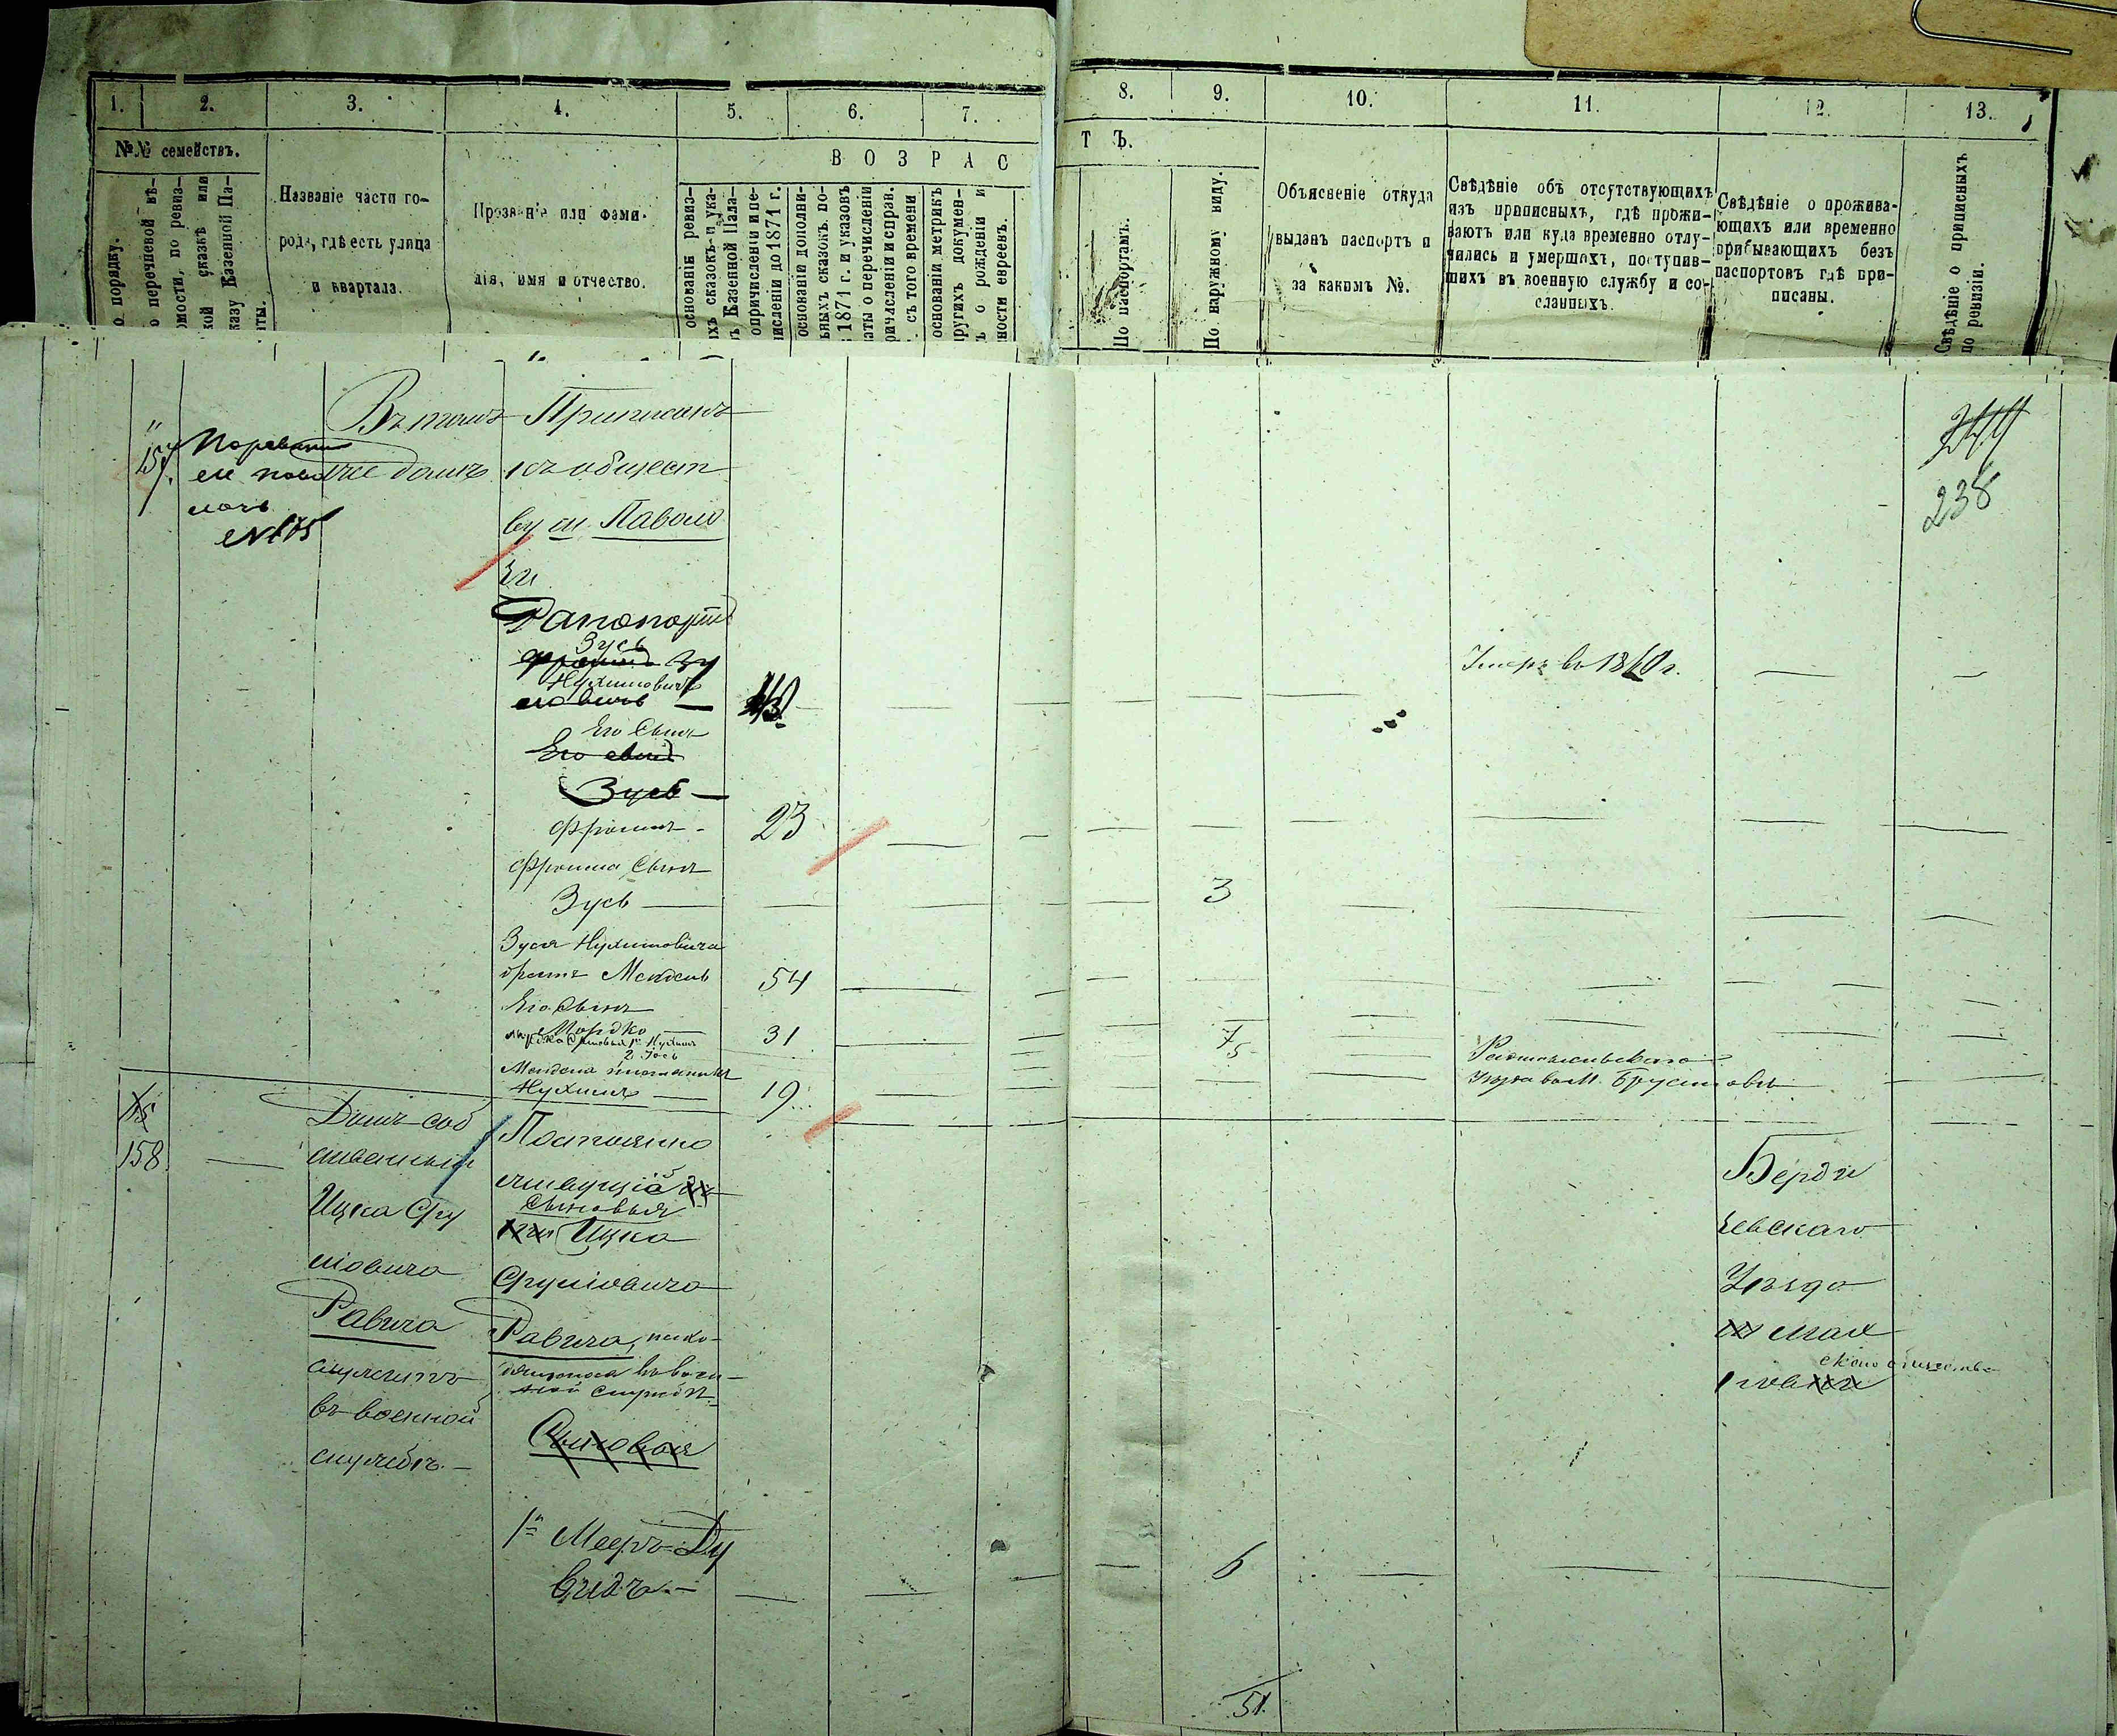 1.
2.
3.
4.
5.
6.
7.
8.
9.
10.
11.
12.
13.
№№ семействъ.
В О З Р А С
Т Ъ.
о порядку.
о перечневой вѣ-
омости, по ревиз-
кой сказкѣ или
казу Казенной Па-
аты.
Названіе части го-
рода, гдѣ есть улица
и квартала.
Прозваніе или фами-
лія, имя и отчество.
основаніи ревиз-
ихъ сказокъ и ука-
ъ Казенной Пала-
опричисленіи и пе-
ислeніи до 1871 г.
основаніи дополни-
ьныхъ сказокъ по-
1871 г. и указовъ
аты о перечисленіи
ричисленіи и справ.
съ того времени
основаніи метрикъ
ругихъ докумен-
ъ о рожденіи и
ности евреевъ.
По паспортамъ.
По наружному виду.
Объясненіе откуда
выданъ паспортъ и
за какимъ №.
Свѣдѣніе объ отсутствующихъ
изъ приписныхъ, гдѣ прожи-
ваютъ или куда временно отлу-
чились и умершихъ, поступив-
шихъ въ военную службу и со-
сланныхъ.
Свѣдѣніе о прожива-
ющихъ или временно
прибывающихъ безъ
паспортовъ гдѣ при-
писаны.
Свѣдѣніе о приписныхъ
по ревизіи.
157.
№175
Въ томъ
же домѣ
Приписанъ
къ общест
ву м. Паволо
чи
238
Рапопортъ
Зусь
Нухимовичъ
Умеръ въ 1860 г.
Его Сынъ
Его сынъ
Зусь
Фроимъ
23
Фроима Сынъ
Зусь
3
Зуся Нухимовича
братъ Мендель
54
Его Сынъ
Мордко
31
Мордка Сыновья 1й Нухимъ
2 Іось
7
5
Менделя племянникъ
Нухимъ
19
Радомысльскаго
уѣзда въ М. Брусиловѣ
158
Домъ соб
ственный
Ицка Сру
лiовича
Равича
служитъ
въ военной
службѣ.
Постоянно
Сыновья
Ицка
Сруліовича
Равича, нахо-
дящагося въ воен-
ной службѣ
Сыновья
1й Мееръ-Ду
видъ
6
Берди
чевскаго
Уѣзда
Мах
новск
скаго общества
51.